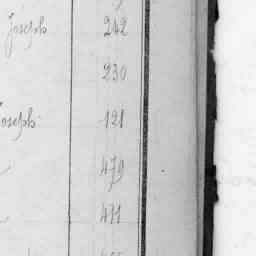 Joseph 242
230
Joseph 121
479
471